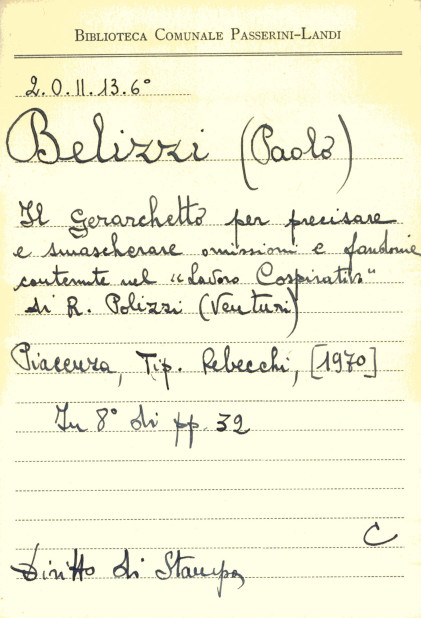 BIBLIOTECA COMUNALE PASSERINI-LANDI
2.O.II.13.6°
Belizzi (Paolo)
Il Gerarchetto per precisare
e smascherare omissioni e fandonie
contenute nel "Lavoro Cospirativo"
di R. Polizzi (Venturi)
Piacenza, Tip. Rebecchi, [1970]
In 8° di pp. 32
C
Diritto di Stampa